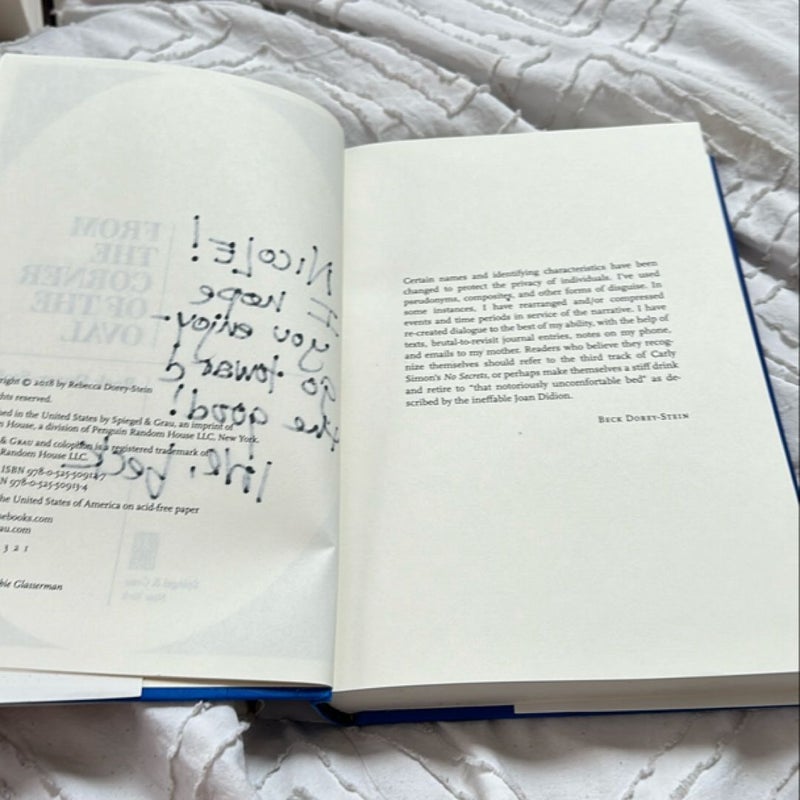 FROM
THE
CORNER
OF THE
OVAL
NICOLE!
I hope
you enjoy -
go toward
the good!
love, beck
Spiegel & Grau
New York
right © 2018 by Rebecca Dorey-Stein
hts reserved.
ed in the United States by Spiegel & Grau, an imprint of
House, a division of Penguin Random House LLC, New York.
& Grau and colophon is a registered trademark of
Random House LLC.
ISBN 978-0-525-50912-7
N 978-0-525-50913-4
he United States of America on acid-free paper
ebooks.com
au.com
3 2 1
bie Glasserman
Certain names and identifying characteristics have been
changed to protect the privacy of individuals. I've used
pseudonyms, composites, and other forms of disguise. In
some instances, I have rearranged and/or compressed
events and time periods in service of the narrative. I have
re-created dialogue to the best of my ability, with the help of
texts, brutal-to-revisit journal entries, notes on my phone,
and emails to my mother. Readers who believe they recog-
nize themselves should refer to the third track of Carly
Simon's No Secrets, or perhaps make themselves a stiff drink
and retire to "that notoriously uncomfortable bed" as de-
scribed by the ineffable Joan Didion.
Beck Dorey-Stein